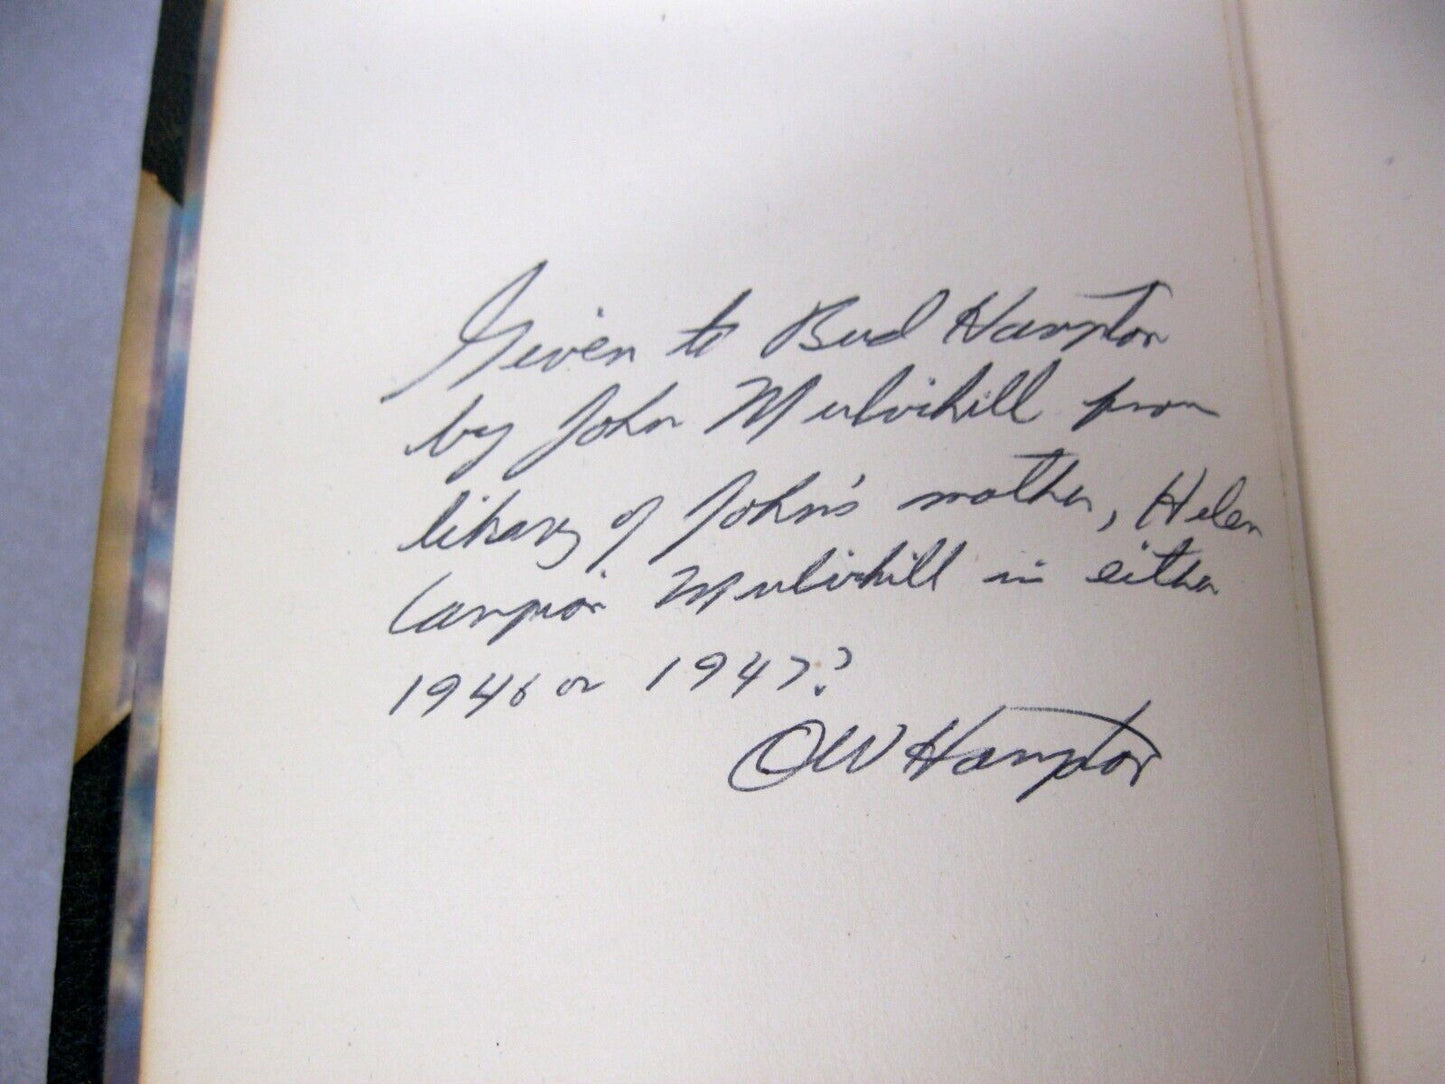 Given to Bud Hampton
by John Mulvihill from
library of John's mother, Helen
Campion Mulvihill in either
1946 or 1947?
OW Hampton